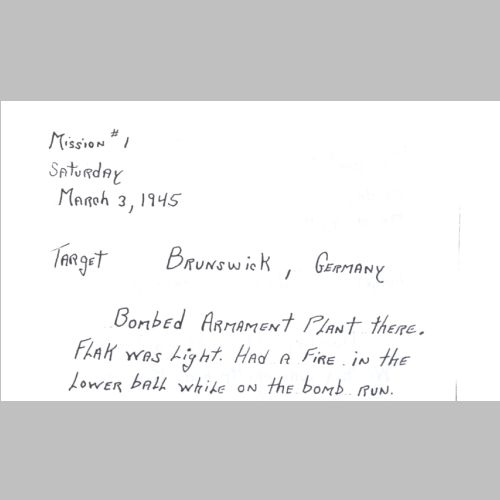 Mission #1
Saturday
March 3, 1945
Target Brunswick, Germany
Bombed Armament Plant there.
Flak was light. Had a fire in the
lower ball while on the bomb run.